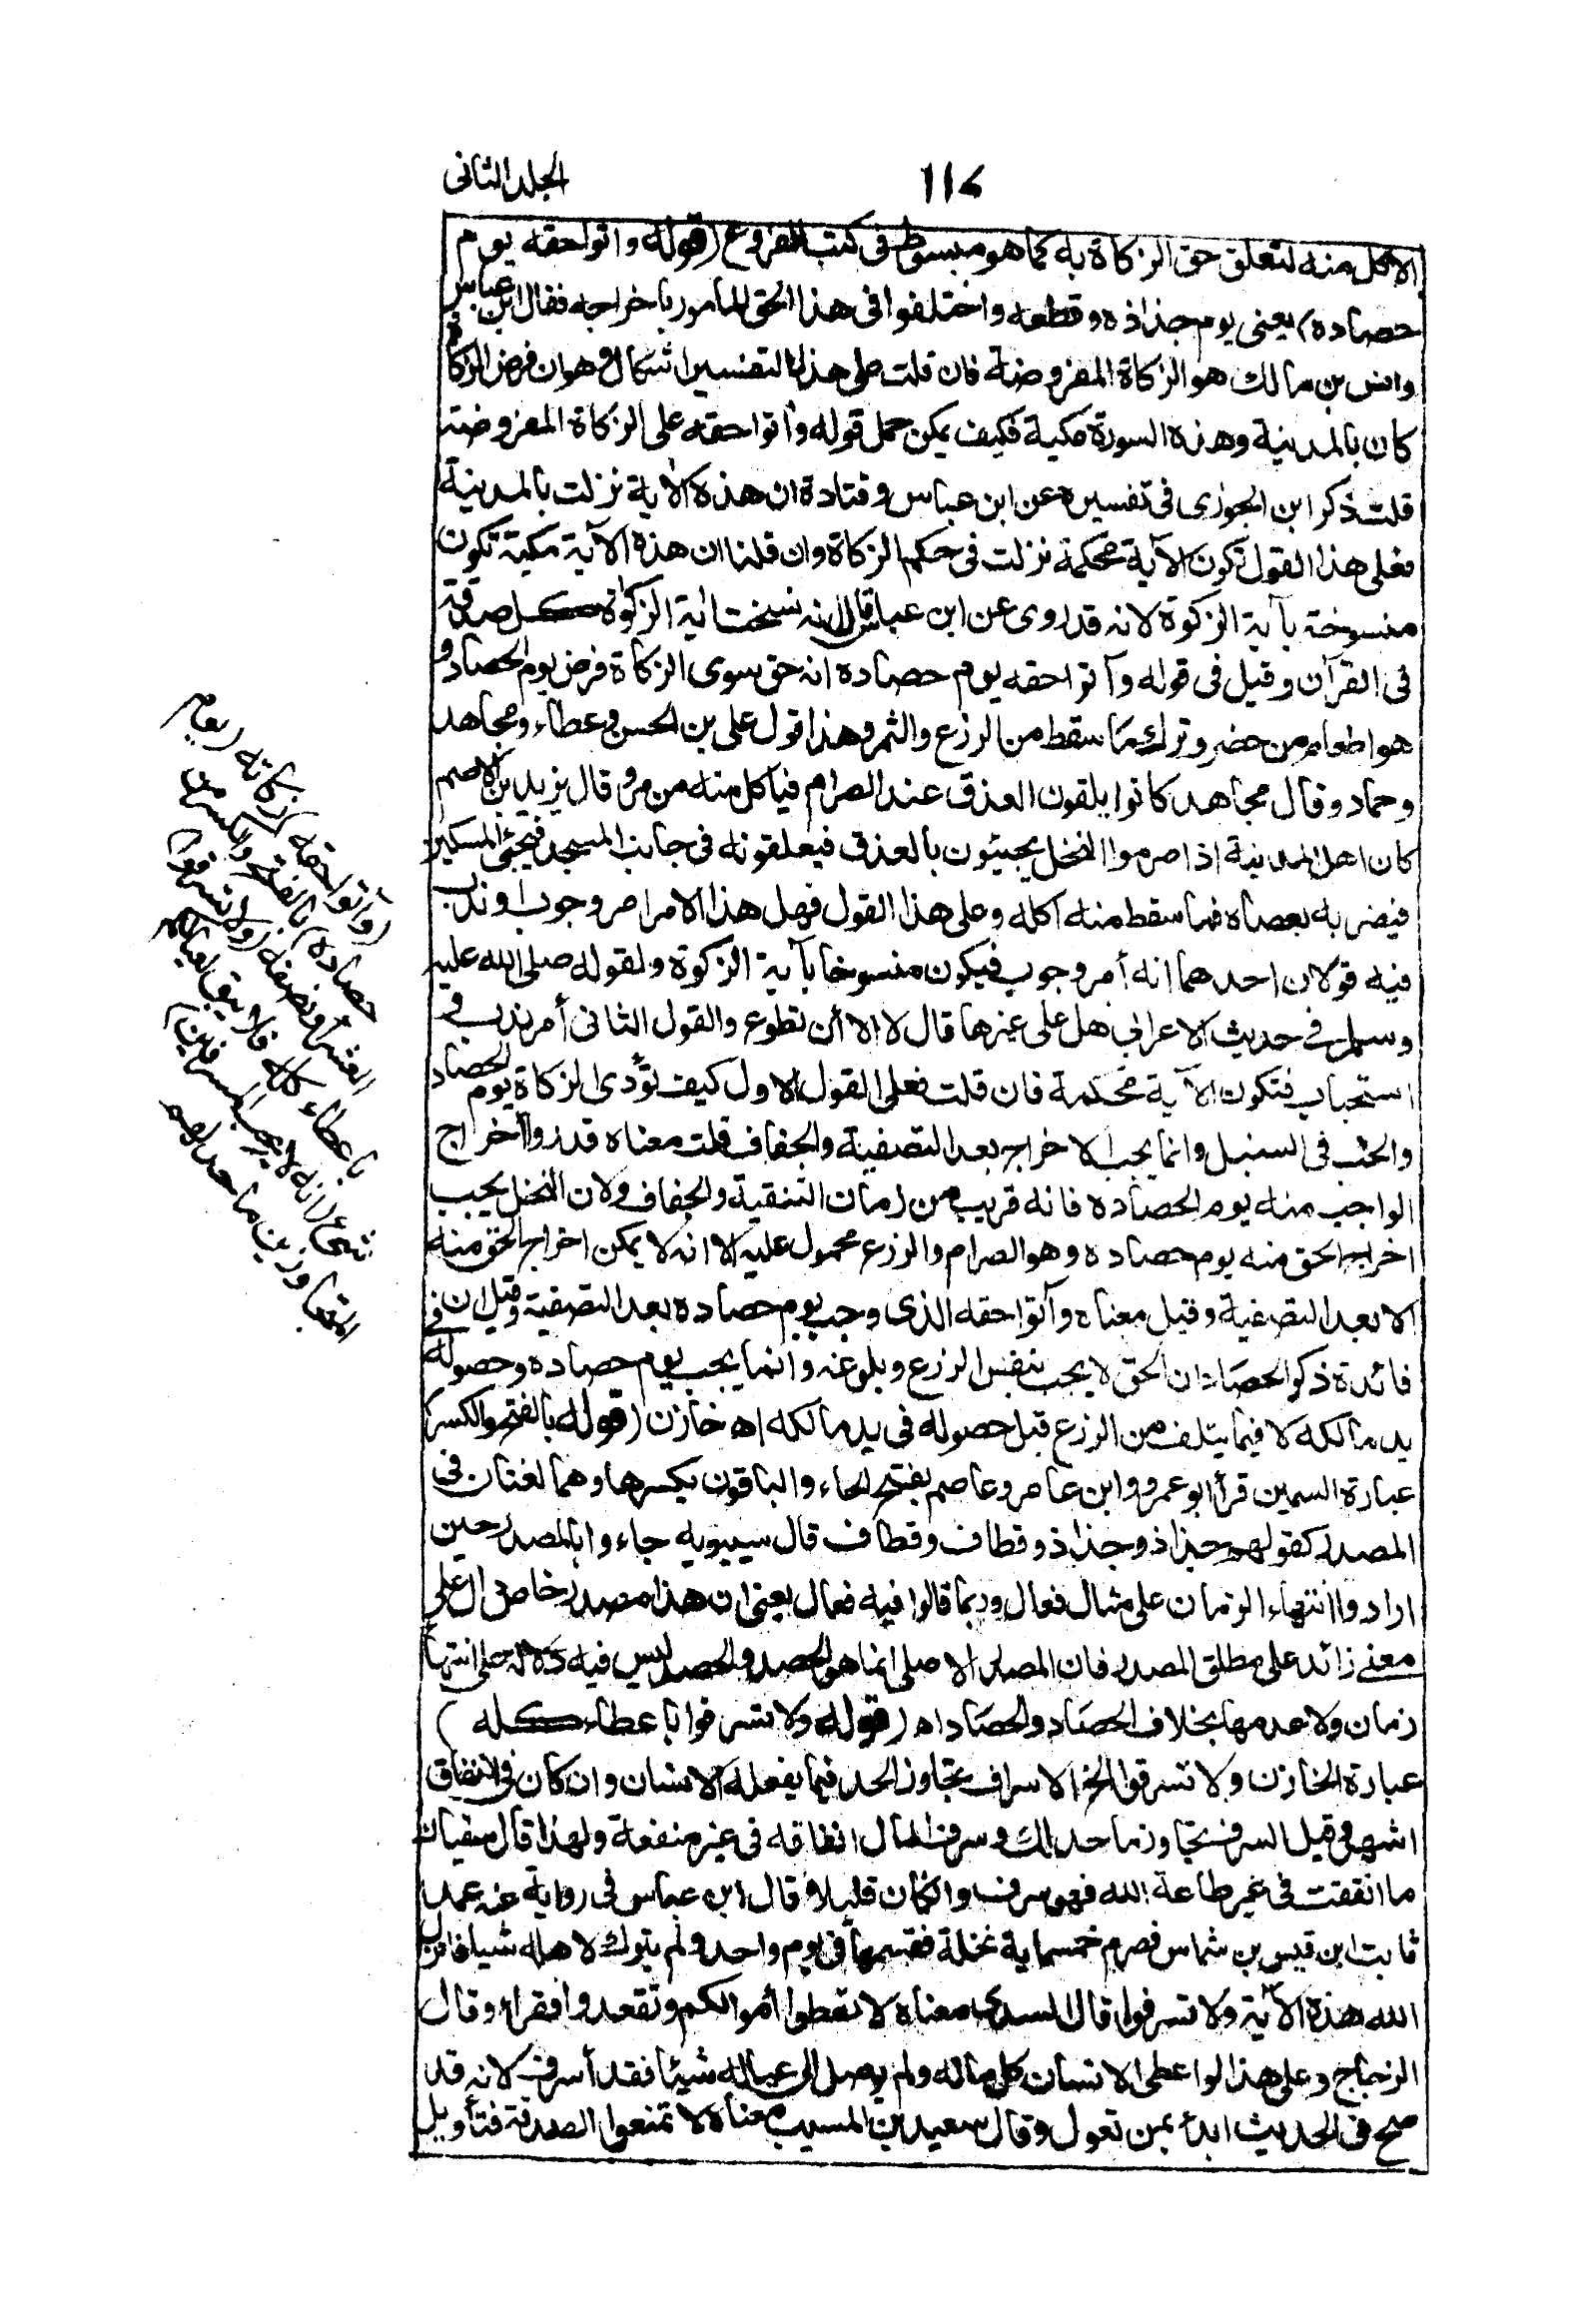 ١١٤
الجلد الثانى
الاكل منه لتعلق حق الزكاة به كما هو مبسوط فى كتب الفروع (قوله واتوا حقه يوم
حصاده) يعنى يوم جذاذه وقطعه واختلفوا فى هذا الحق المأمور باخراجه فقال ابن عباس
وانس بن مالك هو الزكاة المفروضة فان قلت على هذا التفسير اشكال وهو ان فرض الزكاة
كان بالمدينة وهذه السورة مكية فكيف يمكن حمل قوله وأتوا حقه على الزكاة المفروضة
قلت ذكر ابن الجوزى فى تفسيره عن ابن عباس وقتادة ان هذه الأية نزلت بالمدينة
فعلى هذا القول تكون الآية محكمة نزلت فى حكم الزكاة وان قلنا ان هذه الآية مكية تكون
منسوخة بآية الزكوة لانه قد روى عن ابن عباس قال انه نسخت اية الزكوة كل صدقة
فى القرآن وقيل فى قوله وآتوا حقه يوم حصاده انه حق سوى الزكاة فرض يوم الحصاد و
هو اطعام من حضر وترك ما سقط من الزرع والثمر وهذا قول على بن الحسن وعطاء ومجاهد
وحماد وقال مجاهد كانوا يلقون العذق عند الصرام فيأكل منه من مر وقال يزيد بن الاصم
كان اهل المدينة اذا صرموا النخل يجيئون بالعذق فيعلقونه فى جانب المسجد فيجئ المسكين
فيضربه بعصاه فما سقط منه اكله وعلى هذا القول فهل هذا الامر امر وجوب او ندب
فيه قولان احدهما انه أمر وجوب فيكون منسوخا بآية الزكوة ولقوله صلى الله عليه
وسلم فى حديث الاعرابى هل على غيرها قال لا الا أن تطوع والقول الثانى أمر ندب و
استحباب فتكون الآية محكمة فان قلت فعلى القول الاول كيف تؤدى الزكاة يوم الحصاد
والحب فى السنبل وانما يجب الاخراج بعد التصفية والجفاف قلت معناه قدروا أخراج
الواجب منه يوم الحصاده فانه قريب من زمان التنقية والجفاف ولان النخل يجب
اخراج الحق منه يوم حصاده وهو الصرام والزرع محمول عليه الا انه لا يمكن اخراج الحق منه
الا بعد التصفية وقيل معناه وآتوا حقه الذى وجب يوم حصاده بعد التصفية وقيل ان فى
فائدة ذكر الحصاد ان الحق لا يجب بنفس الزرع وبلوغه وانما يجب يوم حصاده وحصوله
يد مالكه لا فيما يتلف من الزرع قبل حصوله فى يد مالكه اه خازن (قوله بالفتح والكسر)
عبارة السمين قرأ ابو عمرو وابن عامر وعاصم بفتح الحاء والباقون بكسرها وهما لغتان فى
المصدر كقولهم جذاذ وجذاذ وقطاف وقطاف قال سيبويه جاءوا بالمصدر حين
ارادوا انتهاء الزمان على مثال فعال وربما قالوا فيه فعال يعنى ان هذا مصدر خاص دال على
معنى زائد على مطلق المصدر فان المصدر الاصلى انما هو الحصد والحصد ليس فيه دلالة على انتهاء
زمان ولا عدمها بخلاف الحصاد والحصاد اه (قوله ولا تسرفوا باعطاء كله)
عبارة الخازن ولا تسرفوا الخ الاسراف تجاوز الحد فيما يفعله الانسان وان كان فى الانفاق
اشهر وقيل السرف تجاوز ما حد لك وسرف المال انفاقه فى غير منفعة ولهذا قال سفيان
ما انفقت فى غير طاعة الله فهو سرف وان كان قليلا وقال ابن عباس فى رواية عنه عمد
ثابت ابن قيس بن شماس فصرم خمسماية نخلة فقسمها فى يوم واحد ولم يترك لاهله شيا فانزل
الله هذه الآية ولا تسرفوا قال السدى معناه لا تعطوا أموالكم وتقعدوا فقراء وقال
الزجاج وعلى هذا لو اعطى الانسان كل ماله ولم يوصل الى عياله شيئا فقد أسرف لانه قد
صح فى الحديث ابدء بمن تعول وقال سعيد بن المسيب معناه لا تمنعوا الصدقة فتأويل
(وآتوا حقه) زكاته (يوم
حصاده) بالفتح والكسر من
العشر او نصفه (ولا تسرفوا)
باعطاء كله فلا يبقى لعيالكم
شئ (انه لا يحب المسرفين)
المتجاوزين ما حد لهم